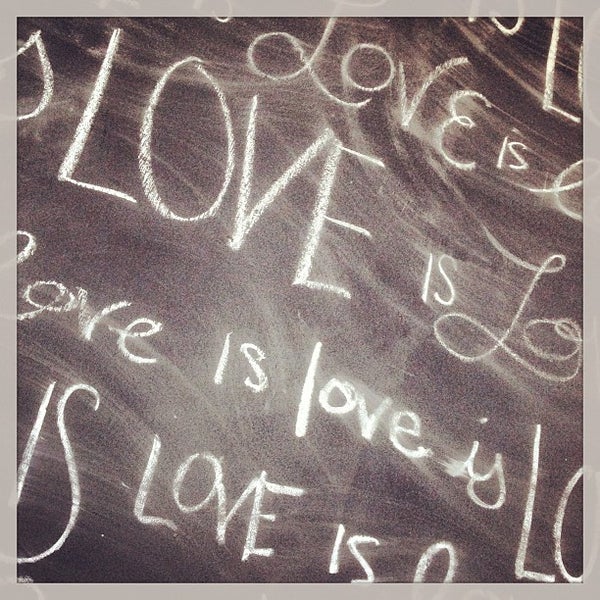 Love is
LOVE is Lo
Love is love is LO
IS LOVE is